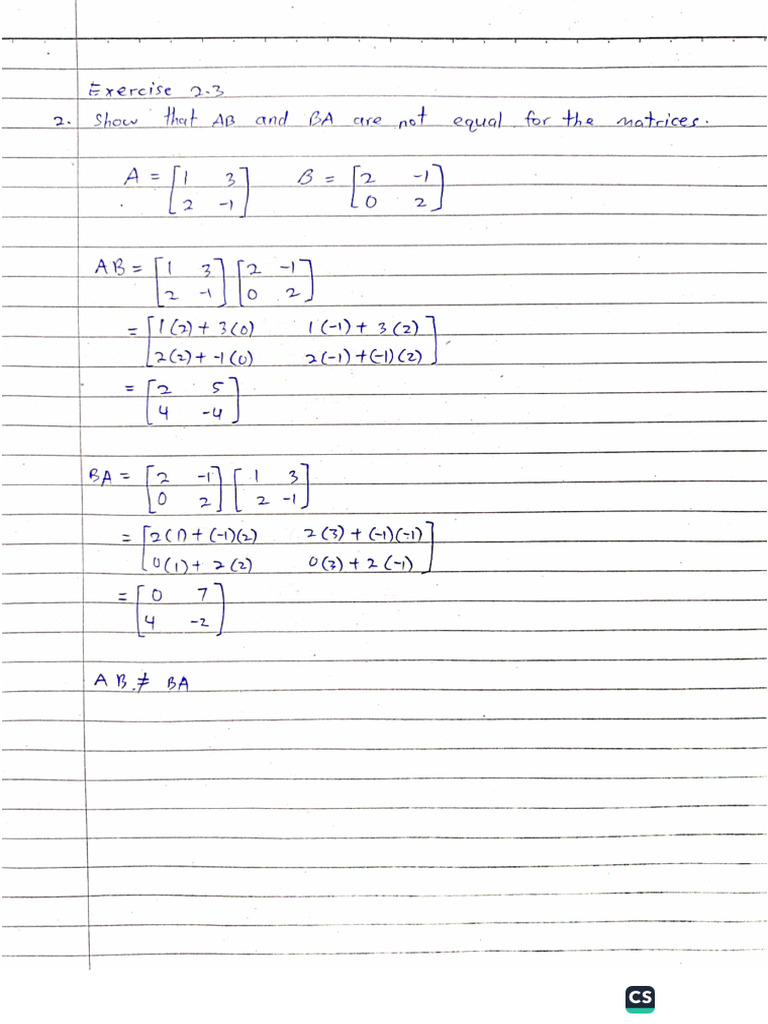 Exercise 2.3
2. Show that AB and BA are not equal for the matrices.
A = [1 3] B = [2 -1]
[2 -1] [0 2]
AB = [1 3] [2 -1]
[2 -1] [0 2]
= [1(2) + 3(0) 1(-1) + 3(2)]
[2(2) + -1(0) 2(-1) + (-1)(2)]
= [2 5]
[4 -4]
BA = [2 -1] [1 3]
[0 2] [2 -1]
= [2(1) + (-1)(2) 2(3) + (-1)(-1)]
[0(1) + 2(2) 0(3) + 2(-1)]
= [0 7]
[4 -2]
AB ≠ BA
CS